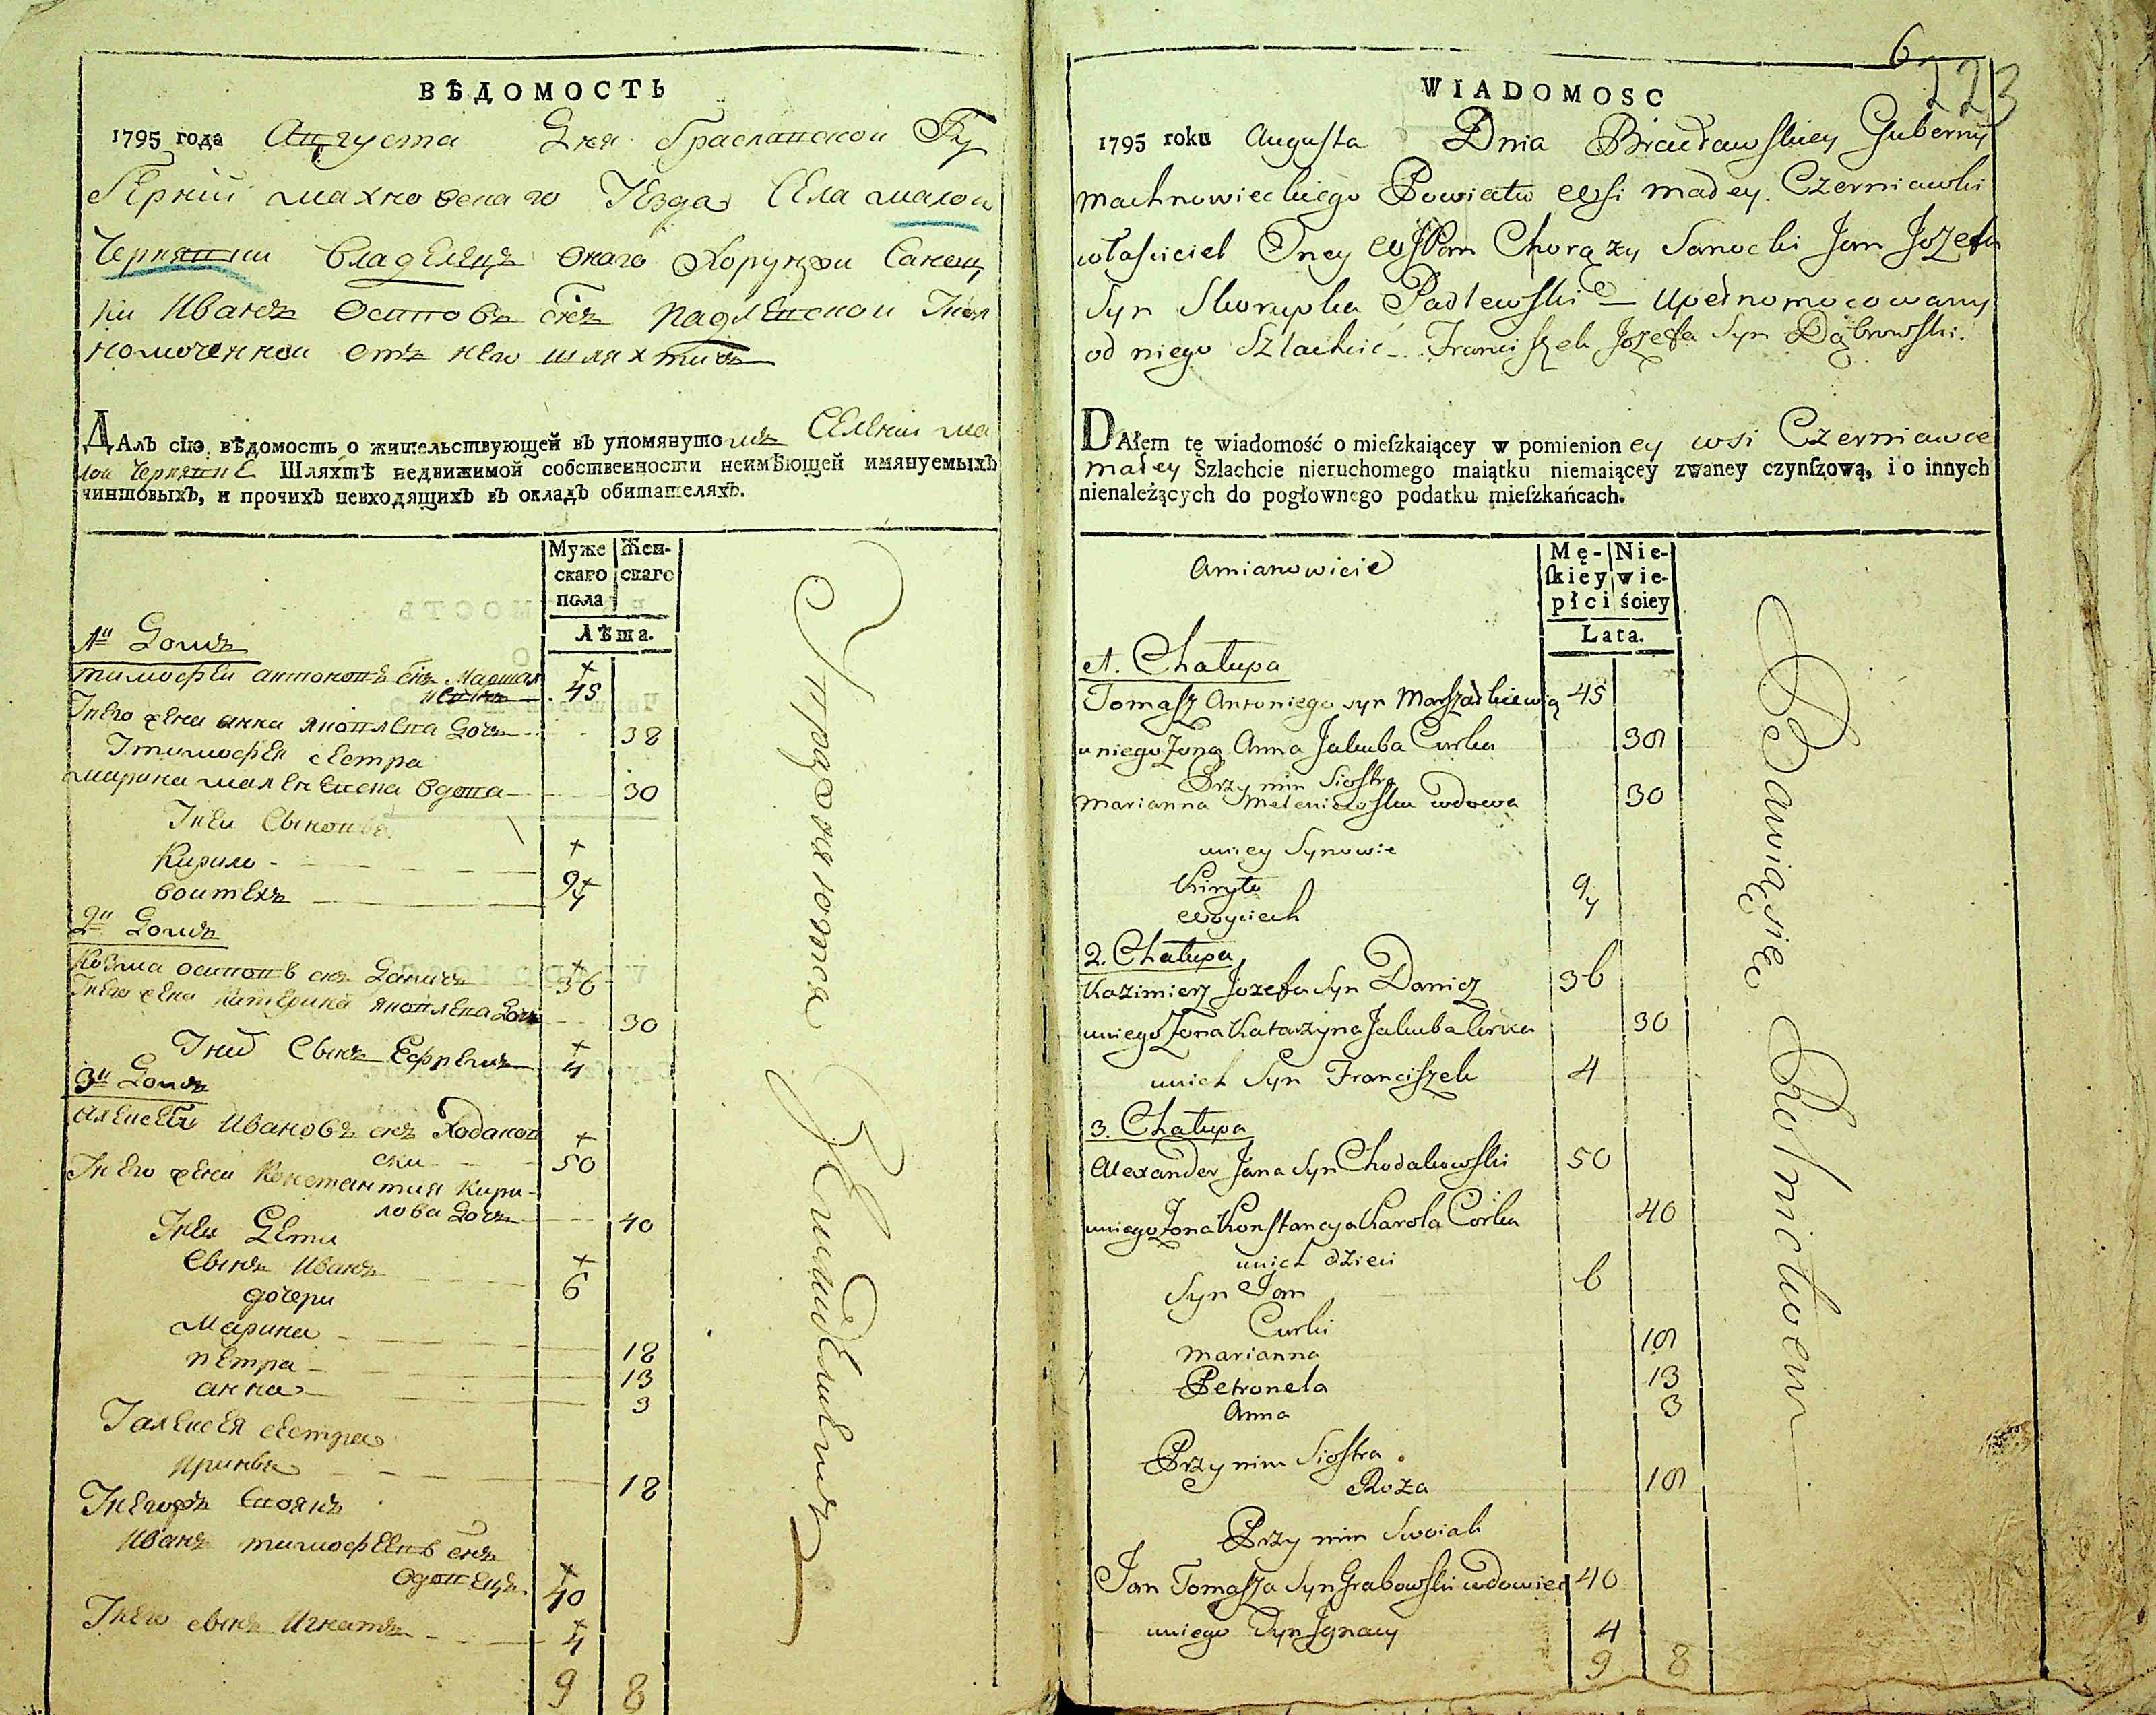 ВѢДОМОСТЬ
1795 года Августа Дня Браславской Гу
берніи махновскаго уезда села малой
Чернявки владелецъ онаго Хорунжи Саноц
ки Иванъ Осиповъ снъ Падлевской упол
номоченной отъ него шляхтичъ
ДАлъ сїю вѣдомость о жительствующей въ упомянутомъ селении ма
лой Чернявке Шляхтѣ недвижимой собственности неимѣющей имянуемыхъ
чиншовыхъ, и прочихъ невходящихъ въ окладъ обитателяхъ.
Муже Жен-
скаго скаго
пола
Лѣта.
1й Домъ
тимофеи антоновъ снъ Маршал
45
У него жена анна яковлева дочь 38
У тимофея сестра
марина 30
У неи сыновья
Кирило 9
воитехъ 7
2й Домъ
Козма осиповъ снъ Даничъ 36
У него жена катерина яковлева дочь 30
У них сынъ Ефремъ 4
3й Домъ
алексеи Ивановъ снъ Ходаков
ски 50
У него жена Константия кири-
лова дочь 40
У них дети
сынъ Иванъ 6
дочери
Марина 18
петра 13
анна 3
У алексея сестра
18
У негожъ своякъ
Иванъ тимофеевъ снъ
вдовецъ 40
У него сынъ Игнатъ 4
9 8
Чиншемъ
6
223
WIADOMOSC
1795 roku Augusta Dnia Bracławskiey Gubernij
Machnowieckiego Powiatu wsi małey Czerniawki
właściciel Oney WJPan Chorąży Sanocki Jan Jozefa
Syn Skorupka Padlewski — Upełnomocowany
od niego Szlachcić Franciszek Jozefa Syn Dąbrowski.
DAłem tę wiadomość o mieſzkaiącey w pomienioney wsi Czerniawce
małey Szlachcie nieruchomego maiątku niemaiącey zwaney czynſzową, i o innych
nienależących do pogłownego podatku mieſzkańcach.
Amianowicie
Mę- Nie-
ſkiéy wie-
płci ściey
Lata.
1. Chałupa
Tomasz Antoniego syn Marszałkiewicz 45
u niego Zona Anna Jakuba Curka 38
Przy nim Siostra
Marianna Meleniewska wdowa 30
u niey Synowie
Kiryło 9
Woyciech 7
2. Chałupa
Kazimierz Jozefa Syn Danicz 36
u niego Zona Katarzyna Jakuba Curka 30
u nich Syn Franciszek 4
3. Chałupa
Alexander Jana Syn Chodakowski 50
u niego Zona Konstancya Karola Córka 40
u nich dzieci
Syn Jan 6
Curki
Marianna 18
Petronela 13
Anna 3
Przy nim Siostra
Roza 18
Przy nim Swoiak
Jan Tomasza Syn Grabowski wdowiec 40
u niego Syn Ignacy 4
9 8
Bawiąsię Rolnictwem